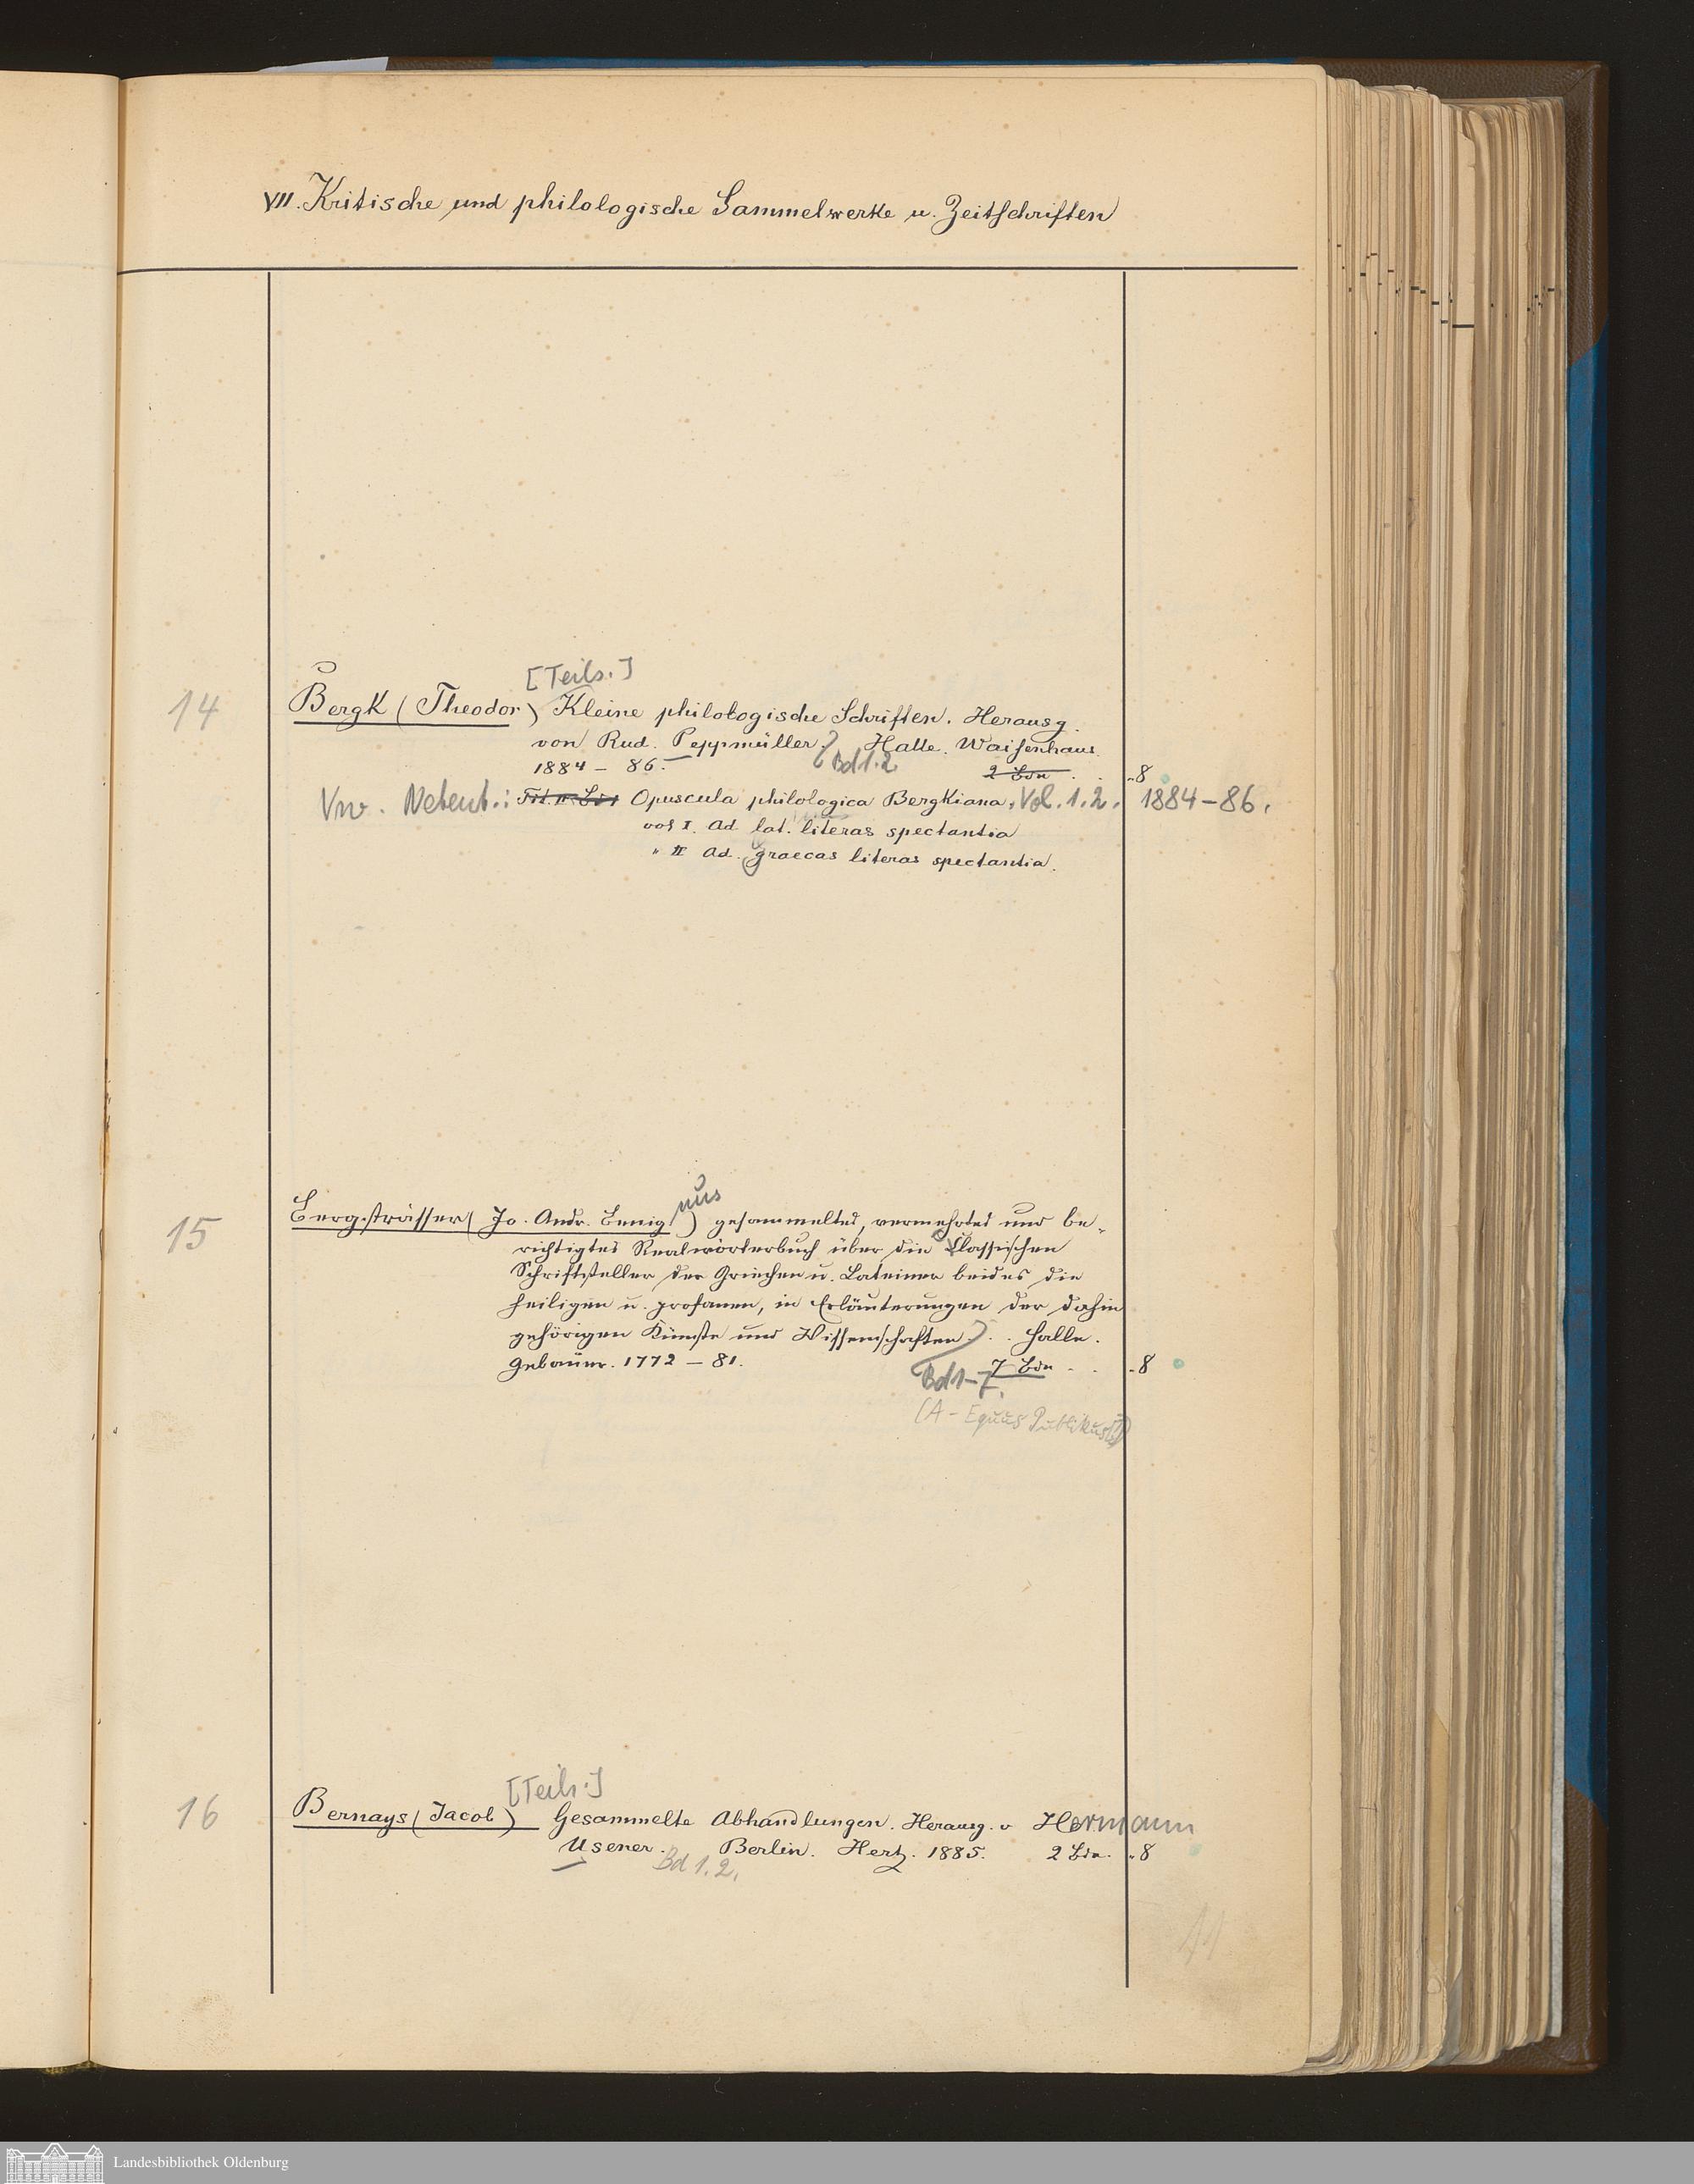 VII. Kritische und philologische Sammelwerke u. Zeitschriften
[Teils.]
14 Bergk (Theodor) Kleine philologische Schriften. Herausg.
von Rud. Peppmüller. Halle. Waisenhaus.
1884 - 86. Bd 1.2 2 Bde . . "8
Vw. Nebent.: Opuscula philologica Bergkiana, Vol. 1.2. 1884-86.
vol I. Ad lat. literas spectantia
" II Ad. graecas literas spectantia.
nus
15 Bergsträsser (Jo. Andr. Benig) gesammeltes, vermehrtes und be-
richtigtes Realwörterbuch über die Classischen
Schriftsteller der Griechen u. Lateiner beides die
heiligen u. profanen, in Erläuterungen der dahin
gehörigen Künste und Wissenschaften. . . Halle.
Gebauer. 1772 - 81. 7 Bde . . "8
Bd 1-7.
(A - Equus Publikus)
[Teils.]
16 Bernays (Jacob) Gesammelte Abhandlungen. Herausg. v Hermann
Usener. Berlin. Hertz. 1885. 2 Bde. "8
Bd 1.2.
11
Landesbibliothek Oldenburg